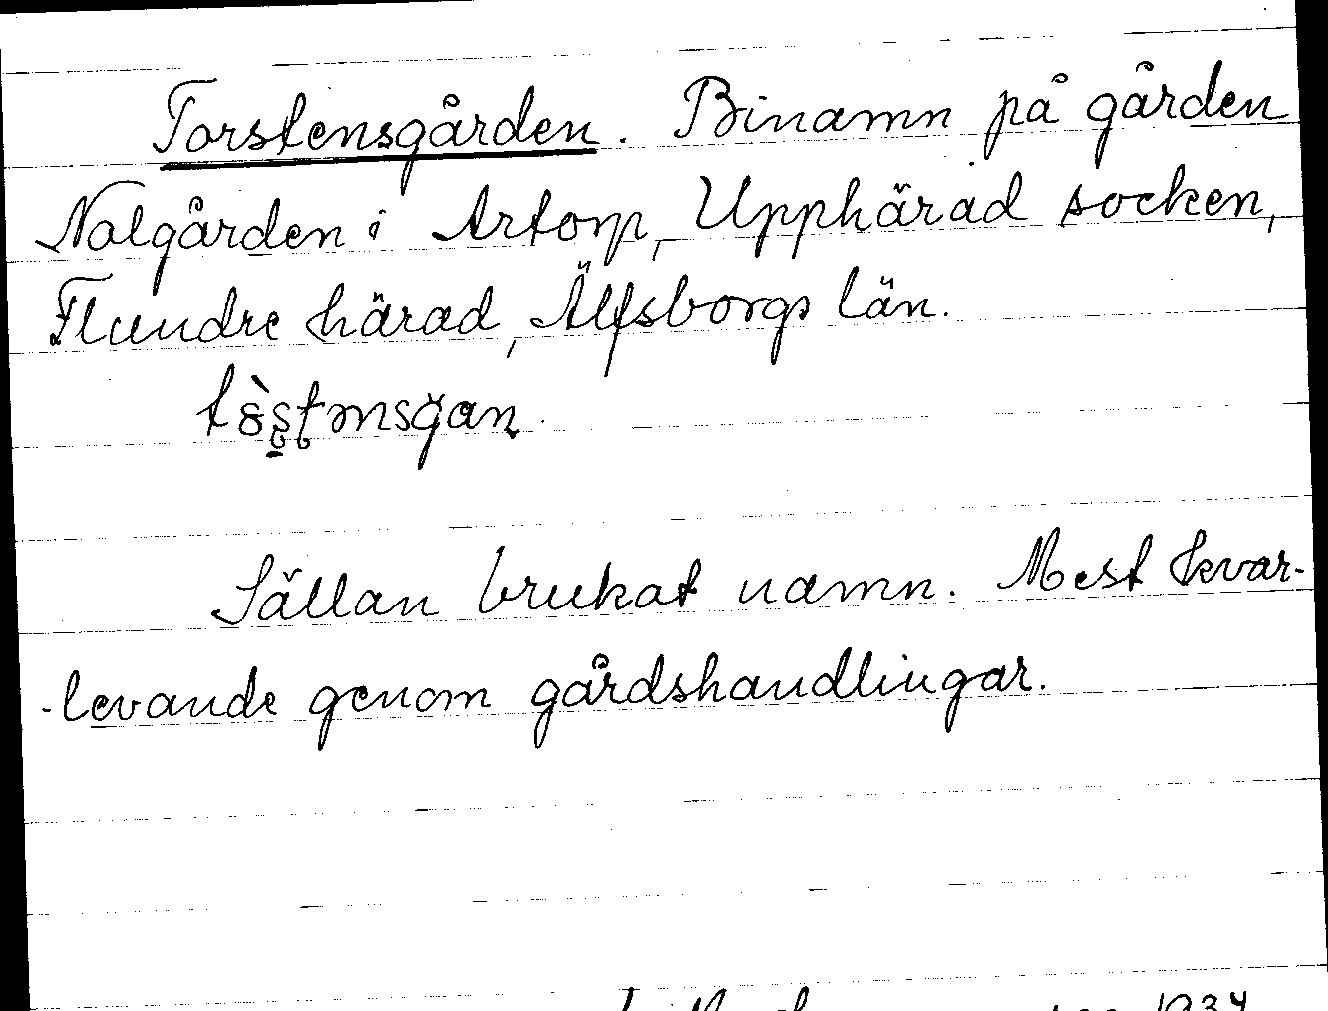 Torstensgården. Binamn på gården
Nolgården i Artorp, Upphärad socken,
Flundre härad, Älfsborgs län.
Sällan brukat namn. Mest kvar-
-levande genom gårdshandlingar.
1934